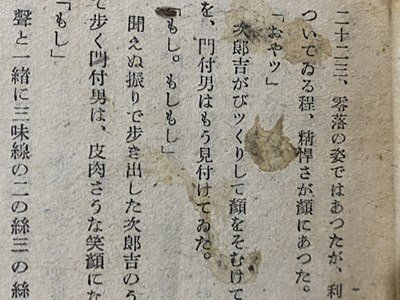 二十二三、零落の姿ではあつたが、利
ついてゐる程、精悍さが顔にあつた。
「おやツ」
次郎吉がびツくりして顔をそむけて
を、門付男はもう見付けてゐた。
「もし。もしもし」
聞えぬ振りで歩き出した次郎吉のう
て歩く門付男は、皮肉さうな笑顔にな
「もし」
聲と一緒に三味線の二の絲三の絲